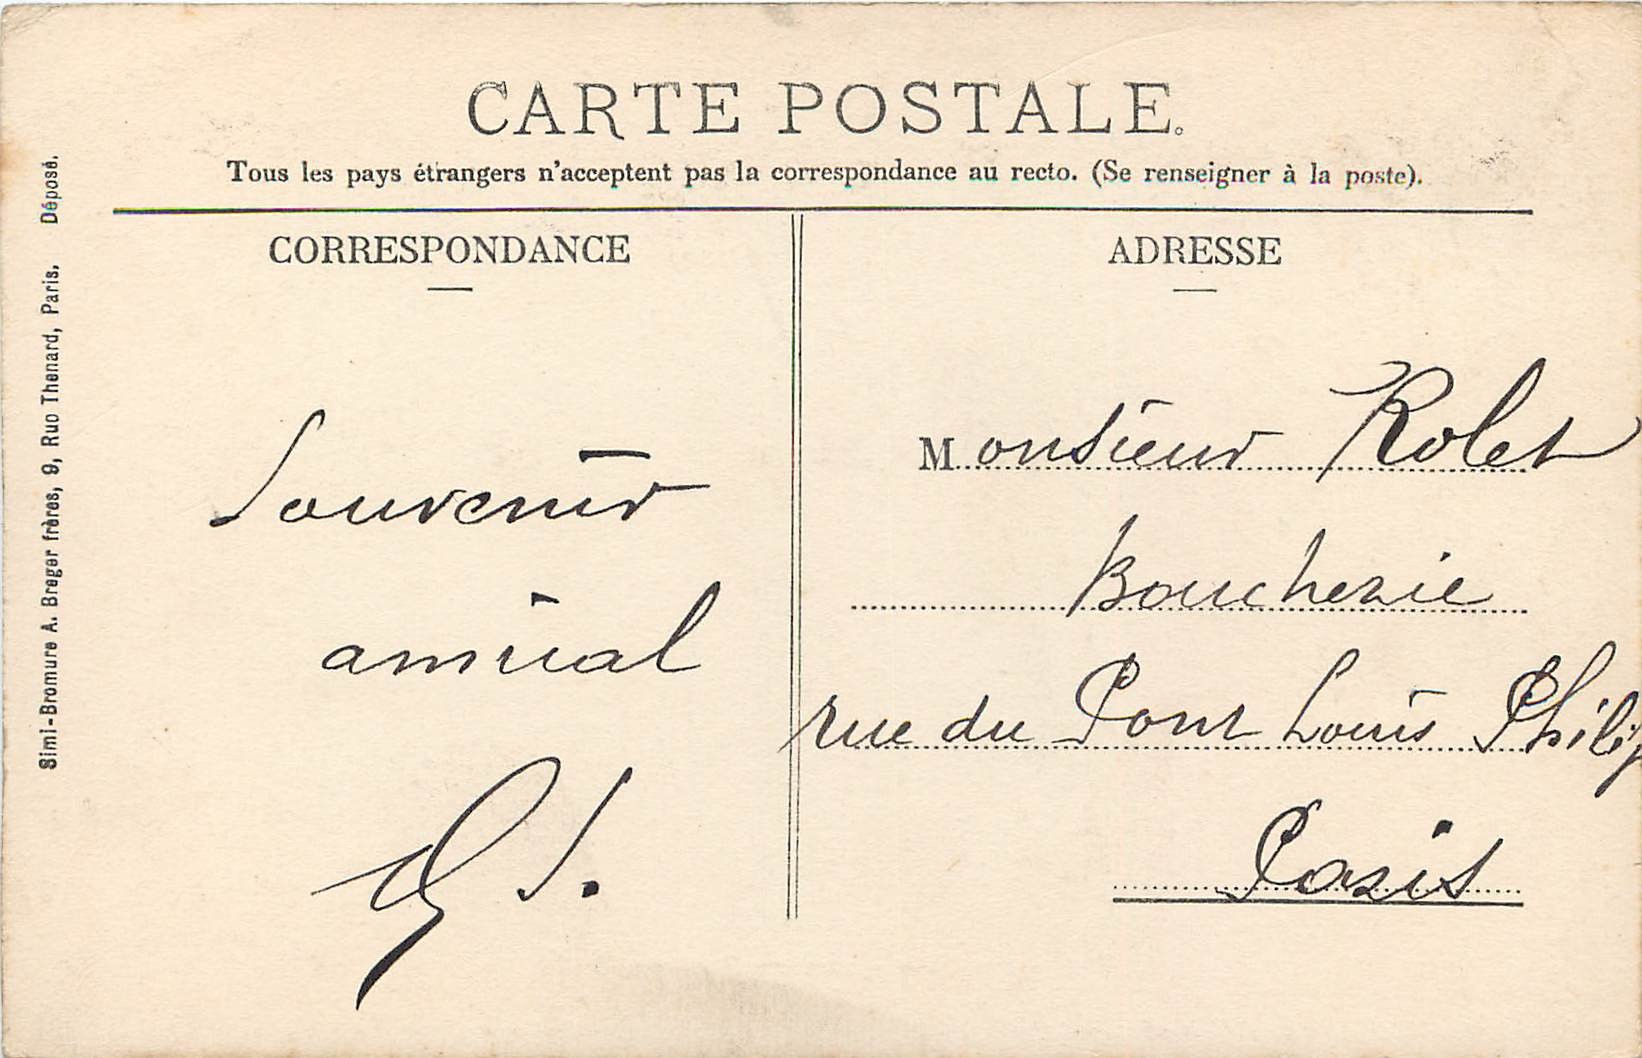 CARTE POSTALE.
Tous les pays étrangers n'acceptent pas la correspondance au recto. (Se renseigner à la poste).
CORRESPONDANCE
Souvenir
amical
ADRESSE
Monsieur Rolet
Boucherie
rue du Pont Louis Philip
Paris
Simi-Bromure A. Breger frères, 9, Rue Thenard, Paris. Déposé.